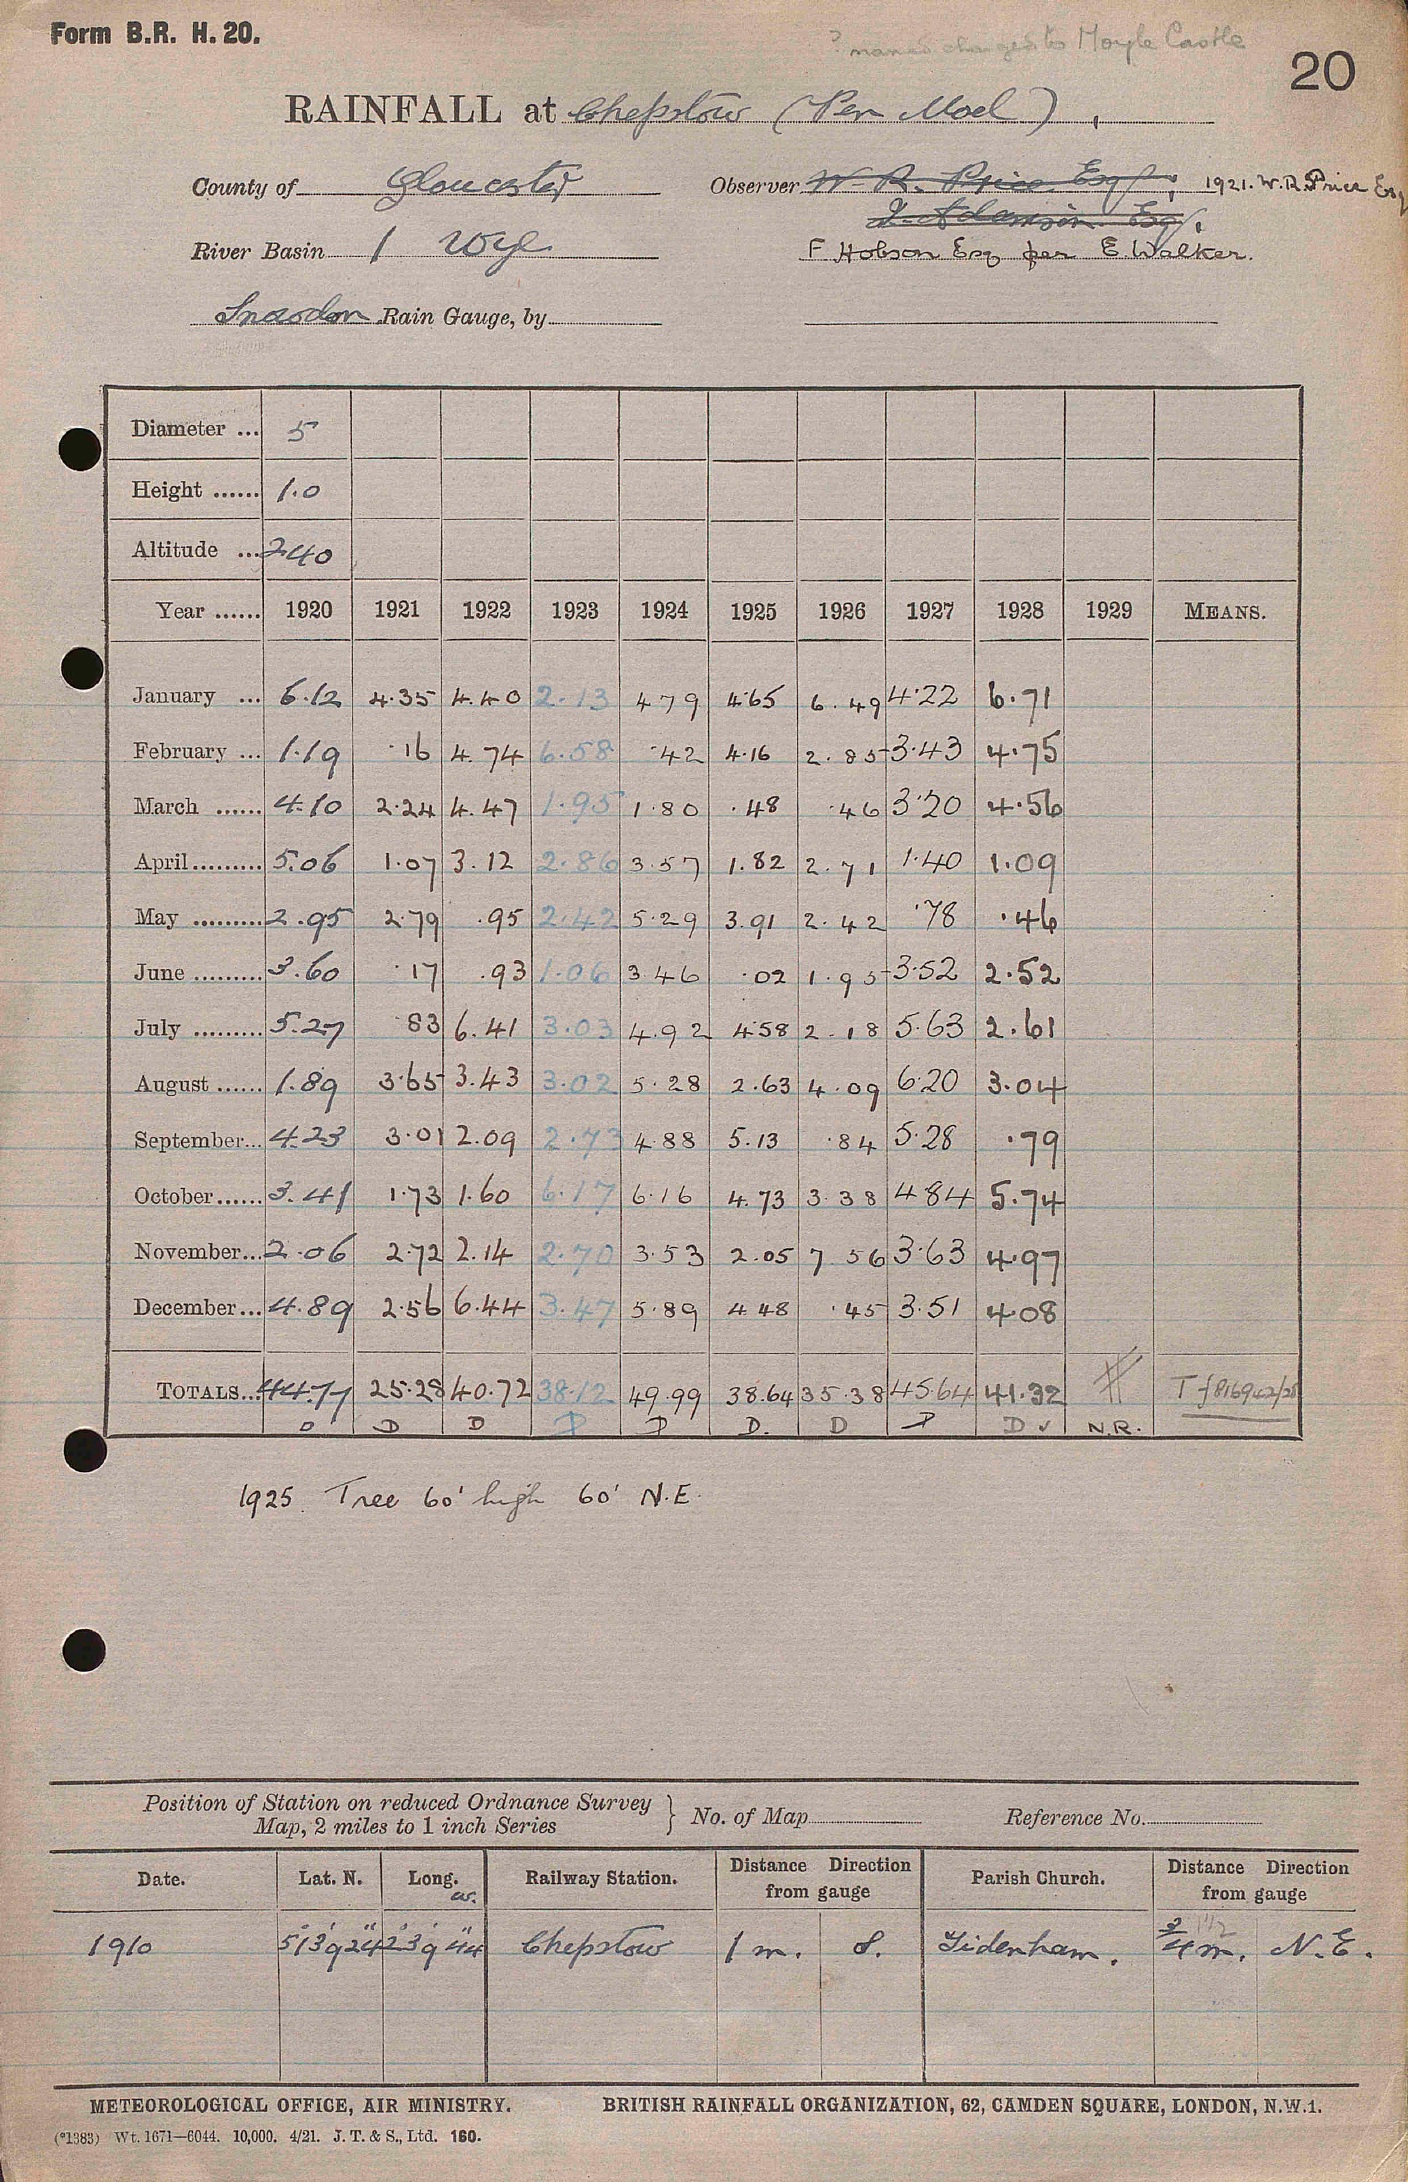 Form B.R. H. 20.
? name changed to Moyle Castle
20
RAINFALL at Chepstow (Pen Moel)
County of Gloucester
Observer W. R. Price Esq; 1921. W.R. Price Esq
Esq.
River Basin 1 Wye
F Hobson Esq per E. Walker.
Snowdon Rain Gauge, by
Diameter ... 5
Height ...... 1.0
Altitude ... 240
Year ...... 1920 1921 1922 1923 1924 1925 1926 1927 1928 1929 MEANS.
January ... 6.12 4.35 4.40 2.13 4 79 4.65 6.49 4.22 6.71
February ... 1.19 .16 4.74 6.58 .42 4.16 2.85 3.43 4.75
March ...... 4.10 2.24 4.47 1.95 1.80 .48 .46 3.20 4.56
April ......... 5.06 1.07 3.12 2.86 3.57 1.82 2.71 1.40 1.09
May ......... 2.95 2.79 .95 2.42 5.29 3.91 2.42 .78 .46
June ......... 3.60 .17 .93 1.06 3.46 .02 1.95 3.52 2.52
July ......... 5.27 .83 6.41 3.03 4.92 4.58 2.18 5.63 2.61
August ...... 1.89 3.65 3.43 3.02 5.28 2.63 4.09 6.20 3.04
September... 4.23 3.01 2.09 2.73 4.88 5.13 .84 5.28 .79
October...... 3.41 1.73 1.60 6.17 6.16 4.73 3.38 4.84 5.74
November... 2.06 2.72 2.14 2.70 3.53 2.05 7.56 3.63 4.97
December... 4.89 2.56 6.44 3.47 5.89 4.48 .45 3.51 4.08
TOTALS... 44.77 25.28 40.72 38.12 49.99 38.64 35.38 45.64 41.32
D D D D D D. D D D ✓ N.R.
1925. Tree 60' high 60' N.E.
Position of Station on reduced Ordnance Survey Map, 2 miles to 1 inch Series } No. of Map Reference No.
Date. Lat. N. Long. W. Railway Station. Distance Direction from gauge Parish Church. Distance Direction from gauge
1910 51° 39' 24" 2° 39' 44" Chepstow 1 m. S. Tidenham. 3/4 m. 1 1/2 N.E.
METEOROLOGICAL OFFICE, AIR MINISTRY. BRITISH RAINFALL ORGANIZATION, 62, CAMDEN SQUARE, LONDON, N.W.1.
(*1383) Wt. 1671—6044. 10,000. 4/21. J. T. & S., Ltd. 160.